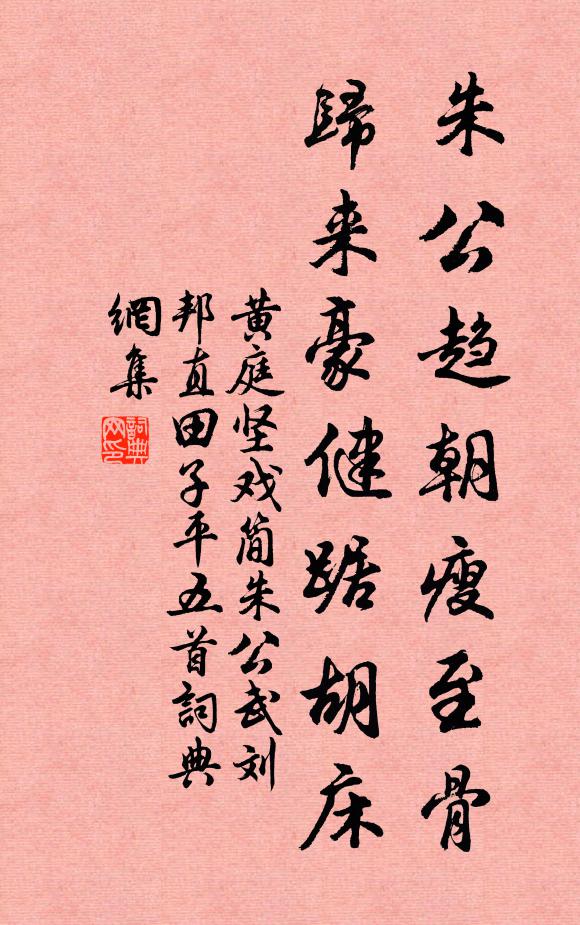 朱公趋朝瘦至骨
歸来豪健踞胡床
黄庭坚戏简朱公武刘
邦直田子平五首詞典
網集
詞典网印